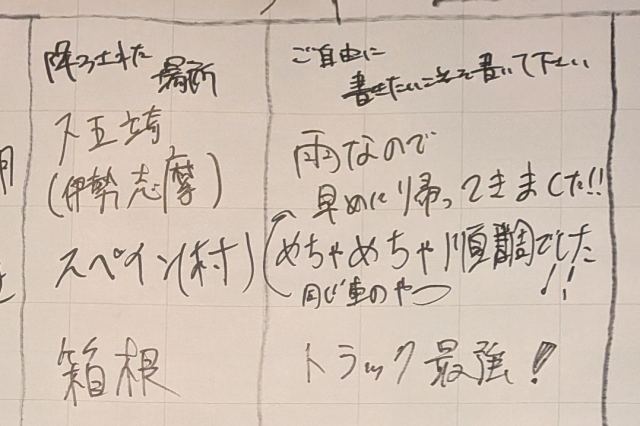 降ろされた
場所
ご自由に
書きたいこと書いて下さい
大王埼
(伊勢志摩)
雨なので
早めに帰ってきました!!
スペイン(村)
めちゃめちゃ順調でした!!
同じ車のやつ
箱根
トラック最強!